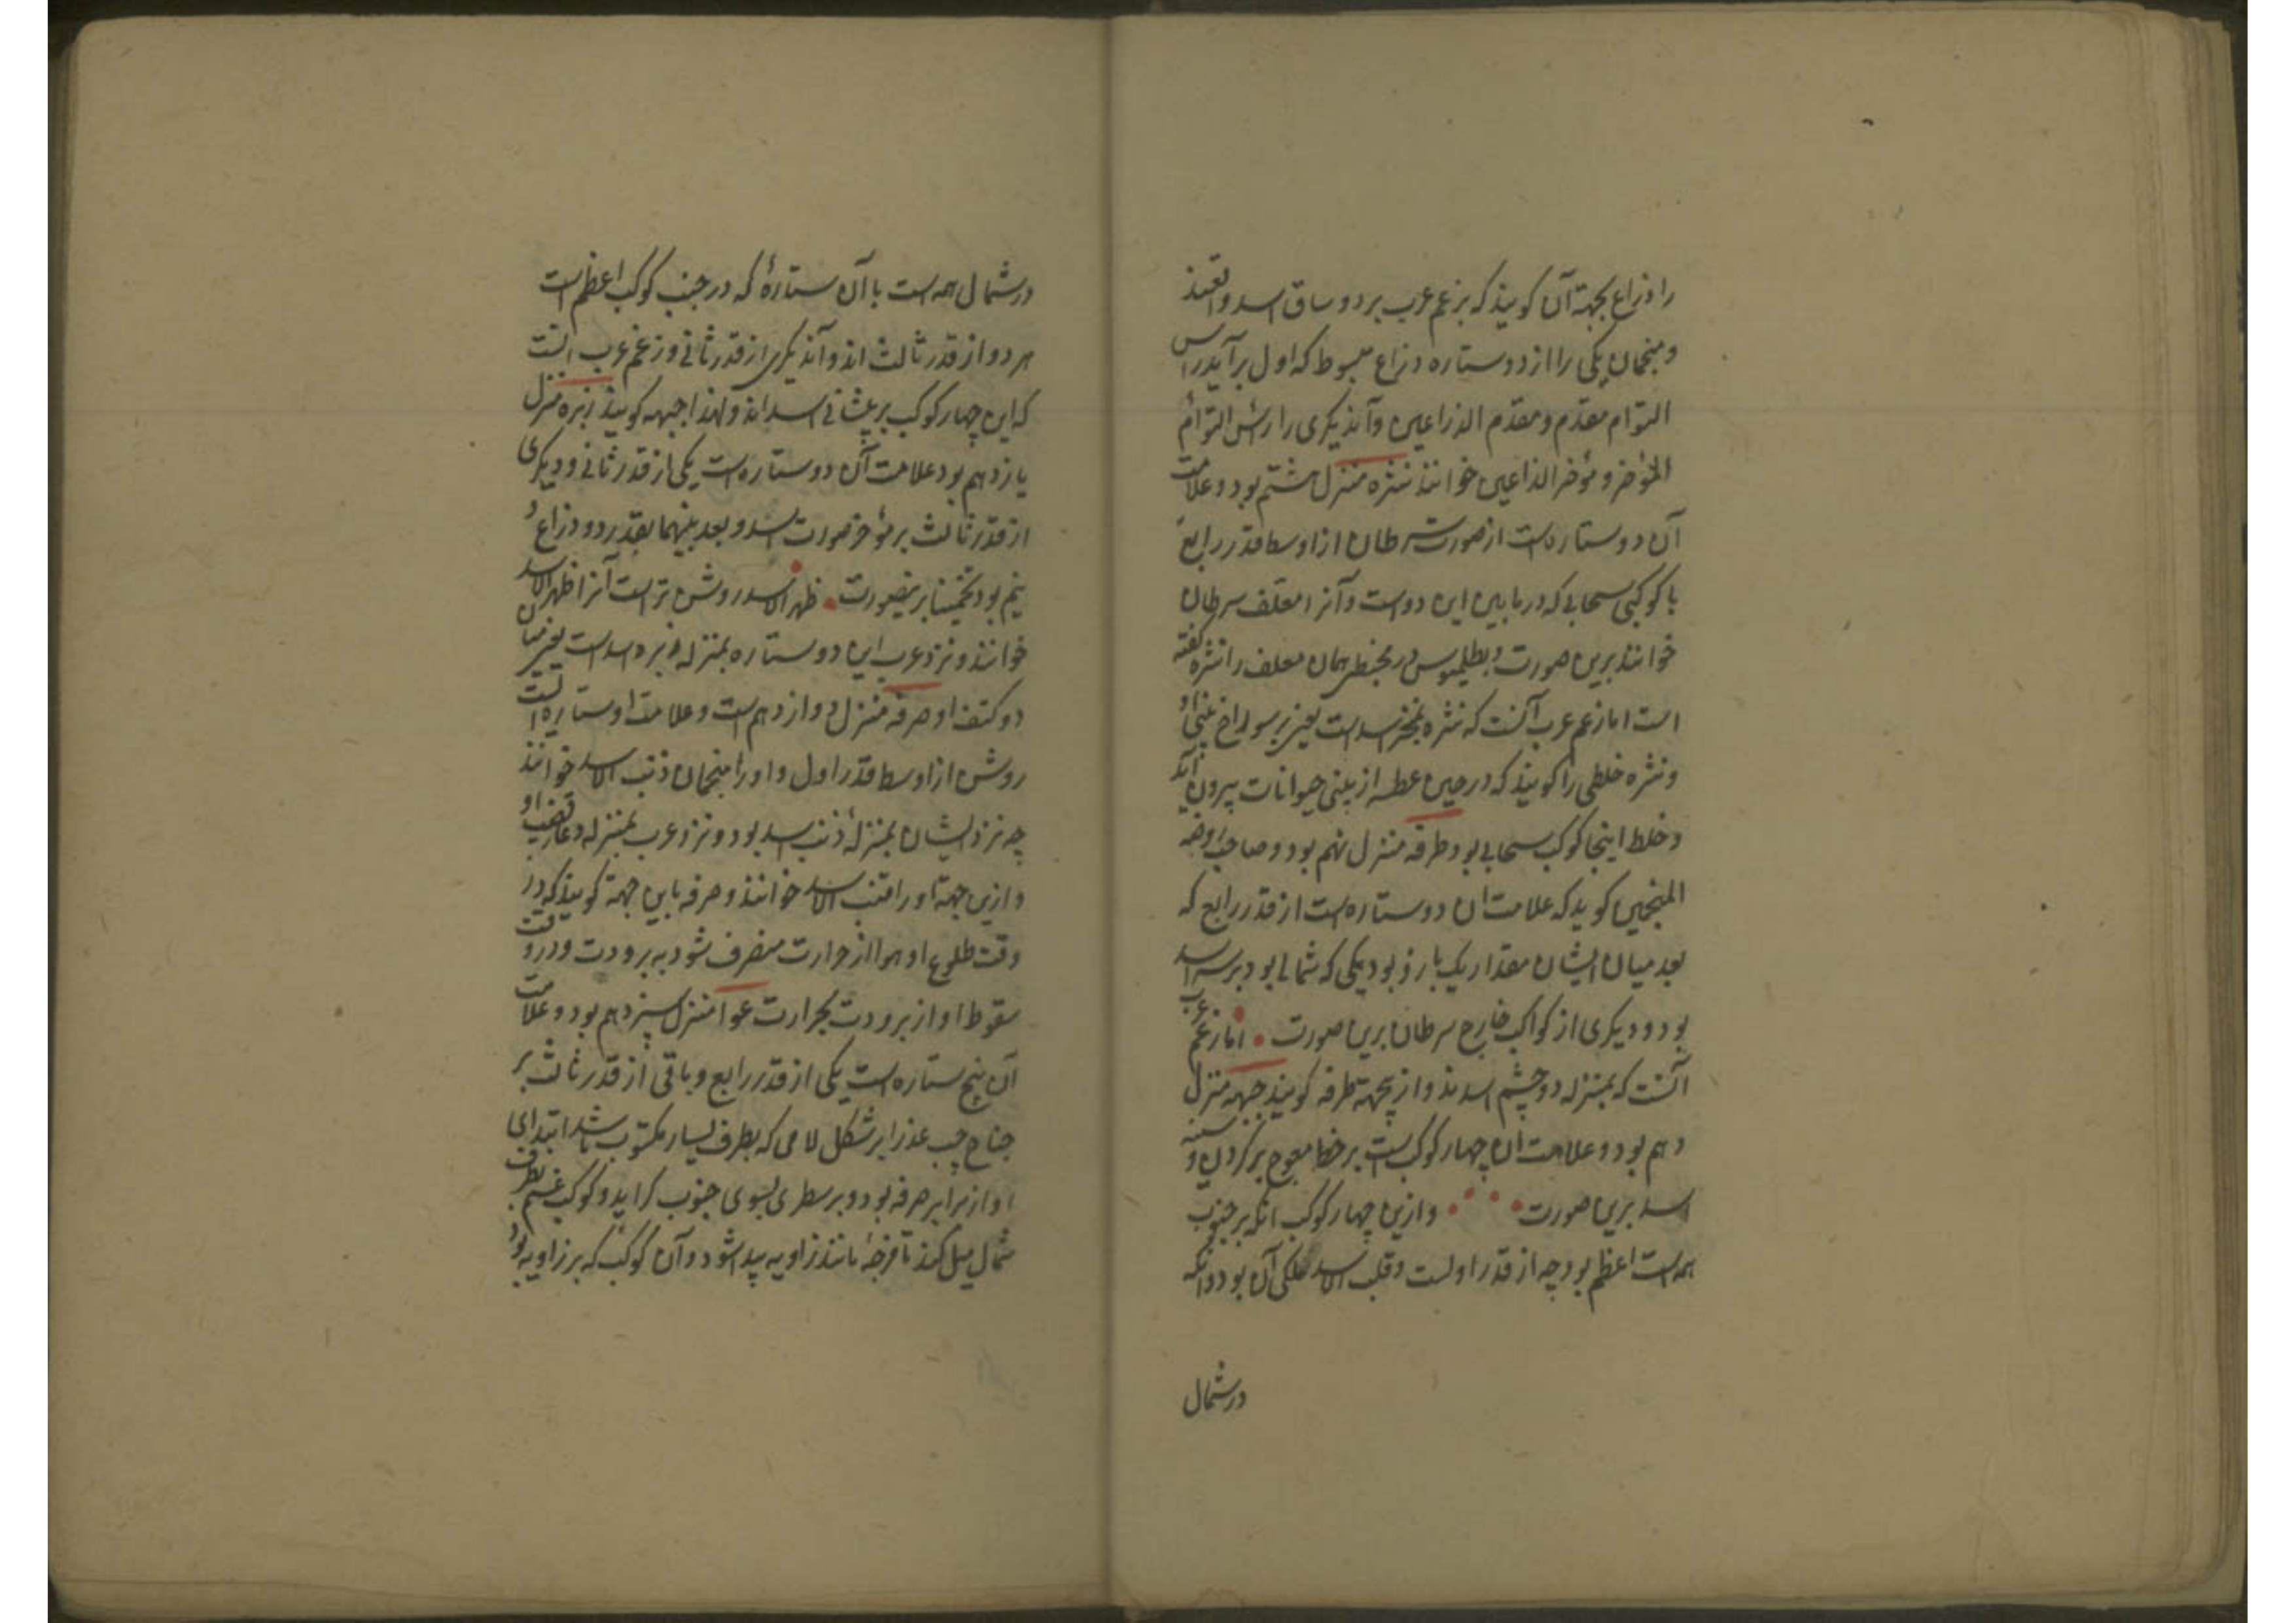 را ذراع بجهة آن کویند که بزعم عرب بر دو ساق اسد واقعند
و منجمان یکی را از دو ستاره ذراع مبسوط که اول برآید راس
التوام مقدم و مقدم الذراعین و آندیکری را راس التوام
المؤخر و مؤخر الذراعین خوانند نثره منزل هشتم بود و علامت
آن دو ستاره است از صورت سرطان از اوسط قدر رابع
با کوکبی سحابی که در ما بین این دو است و آنرا معلف سرطان
خوانند برین صورت و بطلیموس در مجسطی همان معلف را نثره کفته
است اما زعم عرب آنست که نثره بمنخر اسد است یعنی بر سوراخ بینی او
و نثره خلطی را کویند که در حین عطسه از بینی حیوانات بیرون آید
و خلط اینجا کوکب سحابی بود طرفه منزل نهم بود و صاحب روضه
المنجمین کوید که علامت ان دو ستاره است از قدر رابع که
بعد میان ایشان مقدار یک باز و بود یکی که شمالی بود بر سر اسد
بود و دیکری از کواکب خارج سرطان برین صورت اما زعم عرب
آنست که بمنزله دو چشم اسدند و از بجهة طرفه کویند جبهه منزل
دهم بود و علامت ان چهار کوکب است بر خط معوج بر کردن و سینه
اسد برین صورت وازین چهار کوکب انکه بر جنوب
همه است اعظم بود چه از قدر اولست و قلب الاسد ملکی آن بود و انکه
در شمال
در شمال همه است با آن ستارۀ که در جنب کوکب اعظم است
هر دو از قدر ثالث اند و آندیکری از قدر ثانی و زعم عرب انست
که این چهار کوکب بر پیشانی اسد اند و لهذا جبهه کویند زبره منزل
یازدهم بود علامت آن دو ستاره است یکی از قدر ثانی و دیکری
از قدر ثالث بر مؤخر صورت اسد و بعد بینهما بقدر دو ذراع و
نیم بود تخمینا برینصورت ظهر الاسد روشن تر است آنرا ظهر الاسد
خوانند و نزد عرب این دو ستاره بمنزله زبره اسد است یعنی میان
دو کتف او صرفه منزل دوازدهم است و علامت او ستاره ایست
روشن از اوسط قدر اول و او را منجمان ذنب الاسد خوانند
چه نزد ایشان بمنزلۀ ذنب اسد بود و نزد عرب بمنزله وعاء قضیب او
و ازین جهة او را قنب الاسد خوانند و صرفه باین جهة کویند که در
وقت طلوع او هوا از حرارت منصرف شود به برودت و در وقت
سقوط او از برودت بحرارت عوا منزل سیزدهم بود و علامت
آن پنج ستاره است یکی از قدر رابع و باقی از قدر ثالث بر
جناح چپ عذرا بر شکل لامی که بطرف یسار مکتوب باشد ابتدای
او از برابر صرفه بود و بر سطری بسوی جنوب کراید و کوکب بطرف
شمال میل کند تا فرجۀ مانند زاویه پیدا شود و آن کوکب که بر زاویه بود